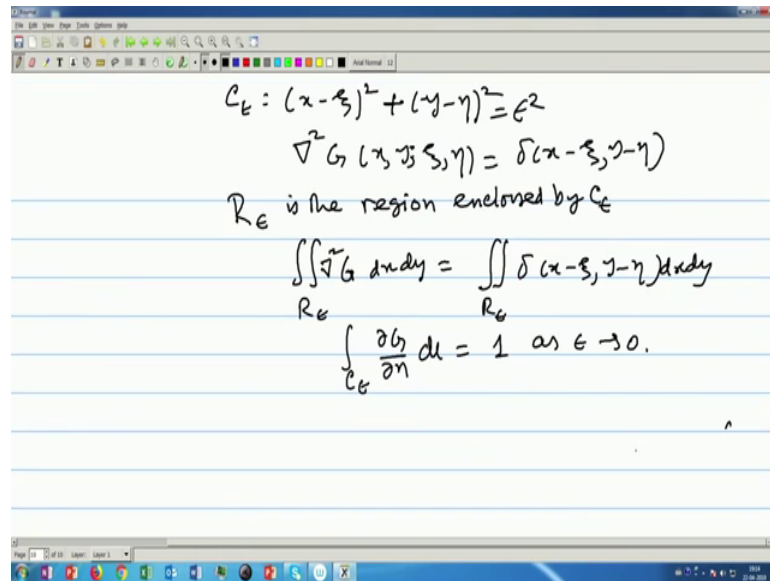 Xournal
File Edit View Page Tools Options Help
Arial Normal 12
C_ε : (x-ξ)² + (y-η)² = ε²
∇²G (x, y; ξ, η) = δ(x-ξ, y-η)
R_ε is the region enclosed by C_ε
∬_{R_ε} ∇²G dxdy = ∬_{R_ε} δ(x-ξ, y-η) dxdy
∫_{C_ε} ∂G/∂n dl = 1 as ε → 0.
Page 10 of 10 Layer: Layer 1